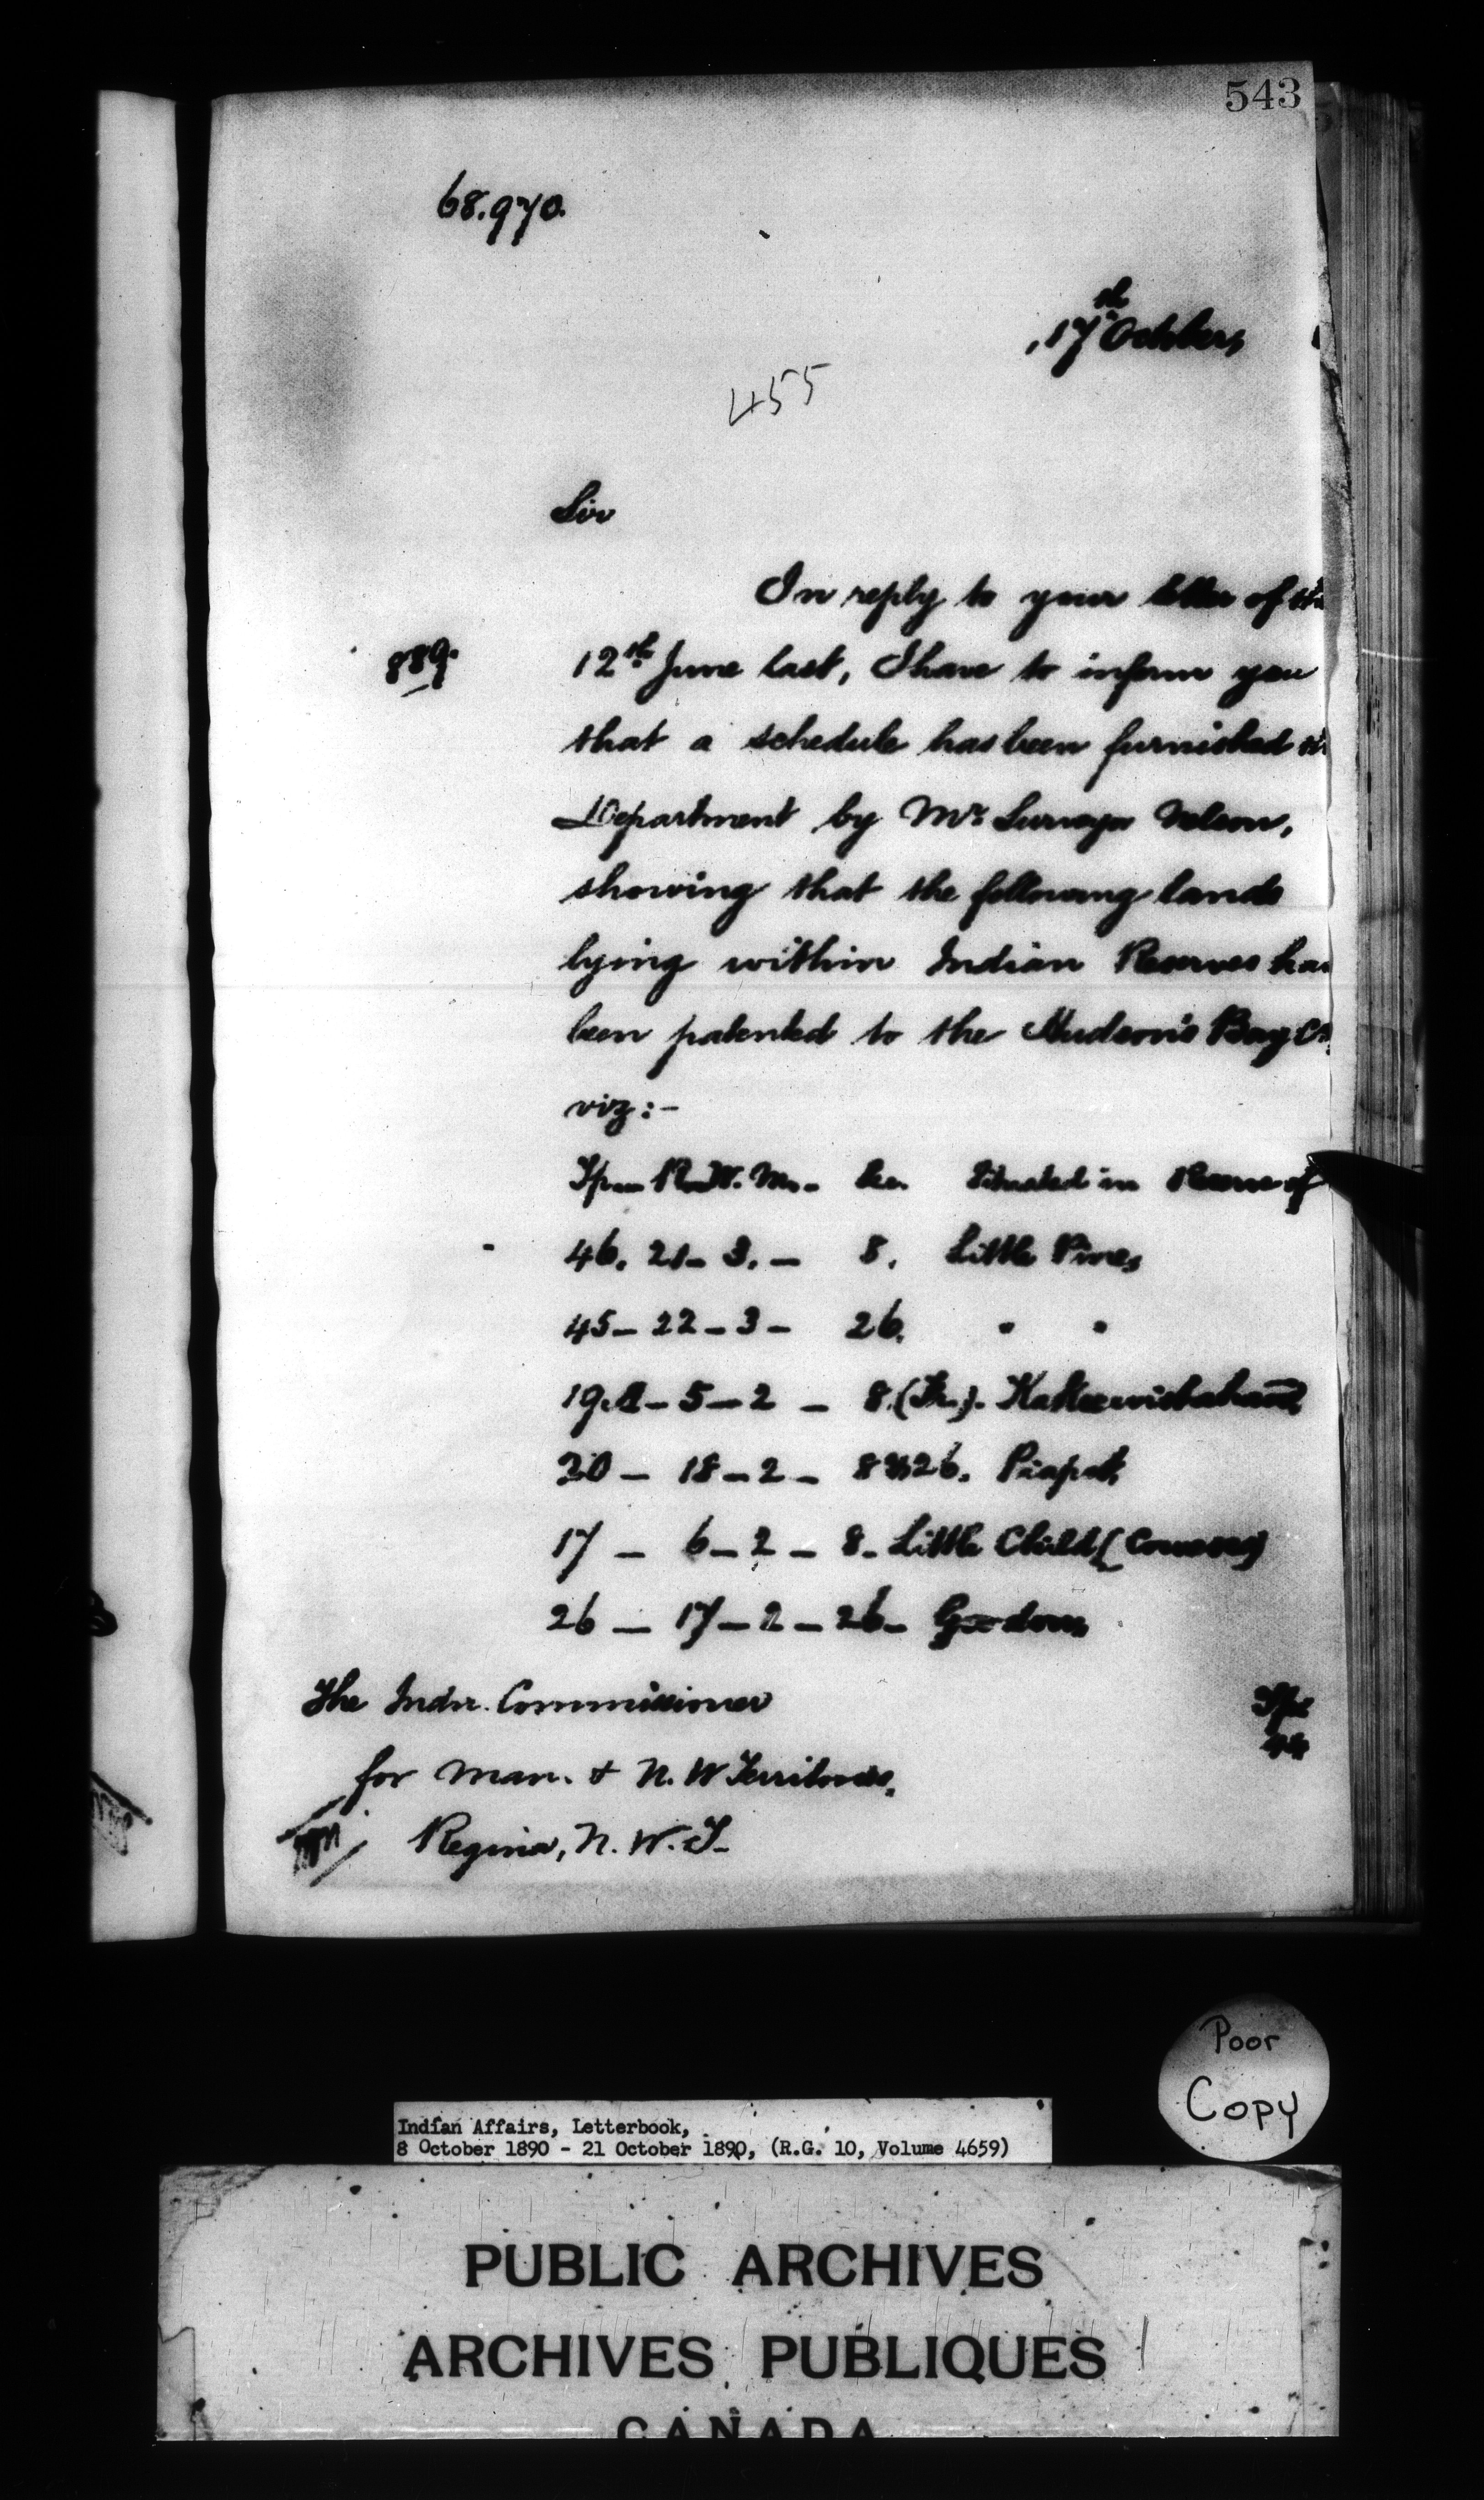 543
68.970.
17th October
455
Sir
In reply to your letter of the
889.
12th June last, I have to inform you
that a schedule has been furnished
Department by Mr. Surveyor Nelson,
showing that the following lands
lying within Indian Reserves ha
been patented to the Hudson's Bay Co.
viz:-
Tp. R. W. M. Sec. Situated in Reserve of
46. 21- 3. - 8. Little Pines
45- 22-3- 26. " "
19.A-5-2 - 8.(Fr.).
20 - 18-2- 8 & 26. Piapot,
17 - 6-2 - 8- Little Child (Cowesess)
26 - 17-2-26- Gordons
The Indn. Commissioner
for Man. & N. W Territories,
Regina, N. W. T-
Poor
Copy
Indian Affairs, Letterbook,
8 October 1890 - 21 October 1890, (R.G. 10, Volume 4659)
PUBLIC ARCHIVES
ARCHIVES PUBLIQUES
CANADA